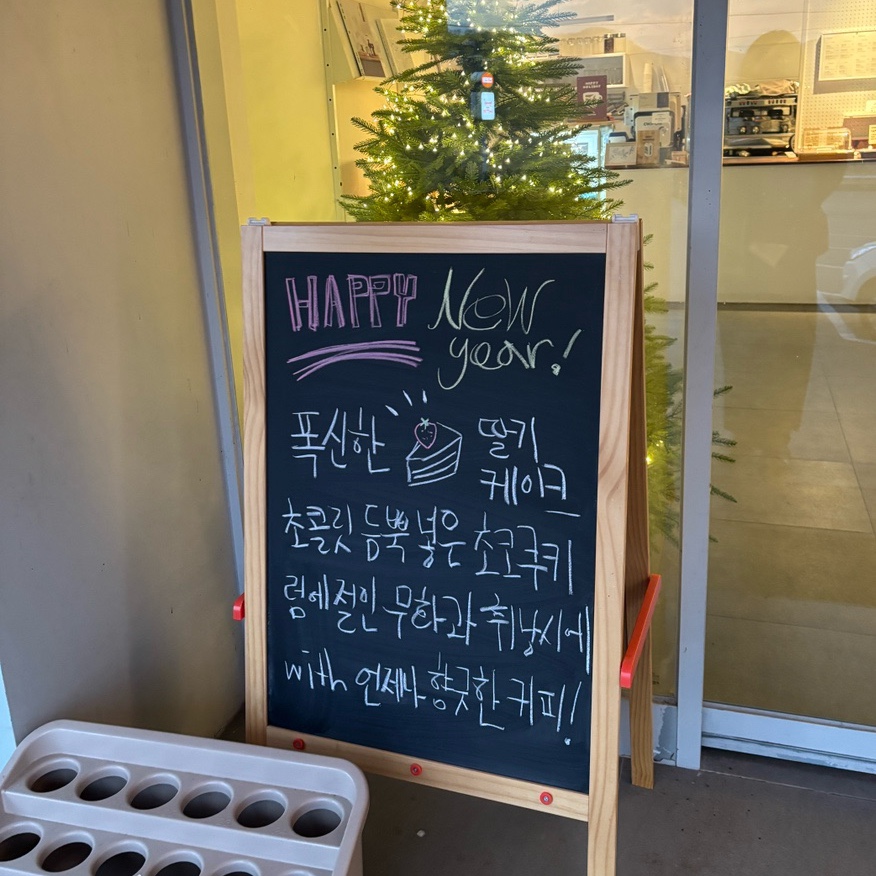 HAPPY New
year!
폭신한 딸기
케이크
초콜릿 듬뿍 넣은 초코쿠키
럼에 절인 무화과 휘낭시에
with 언제나 향긋한 커피!